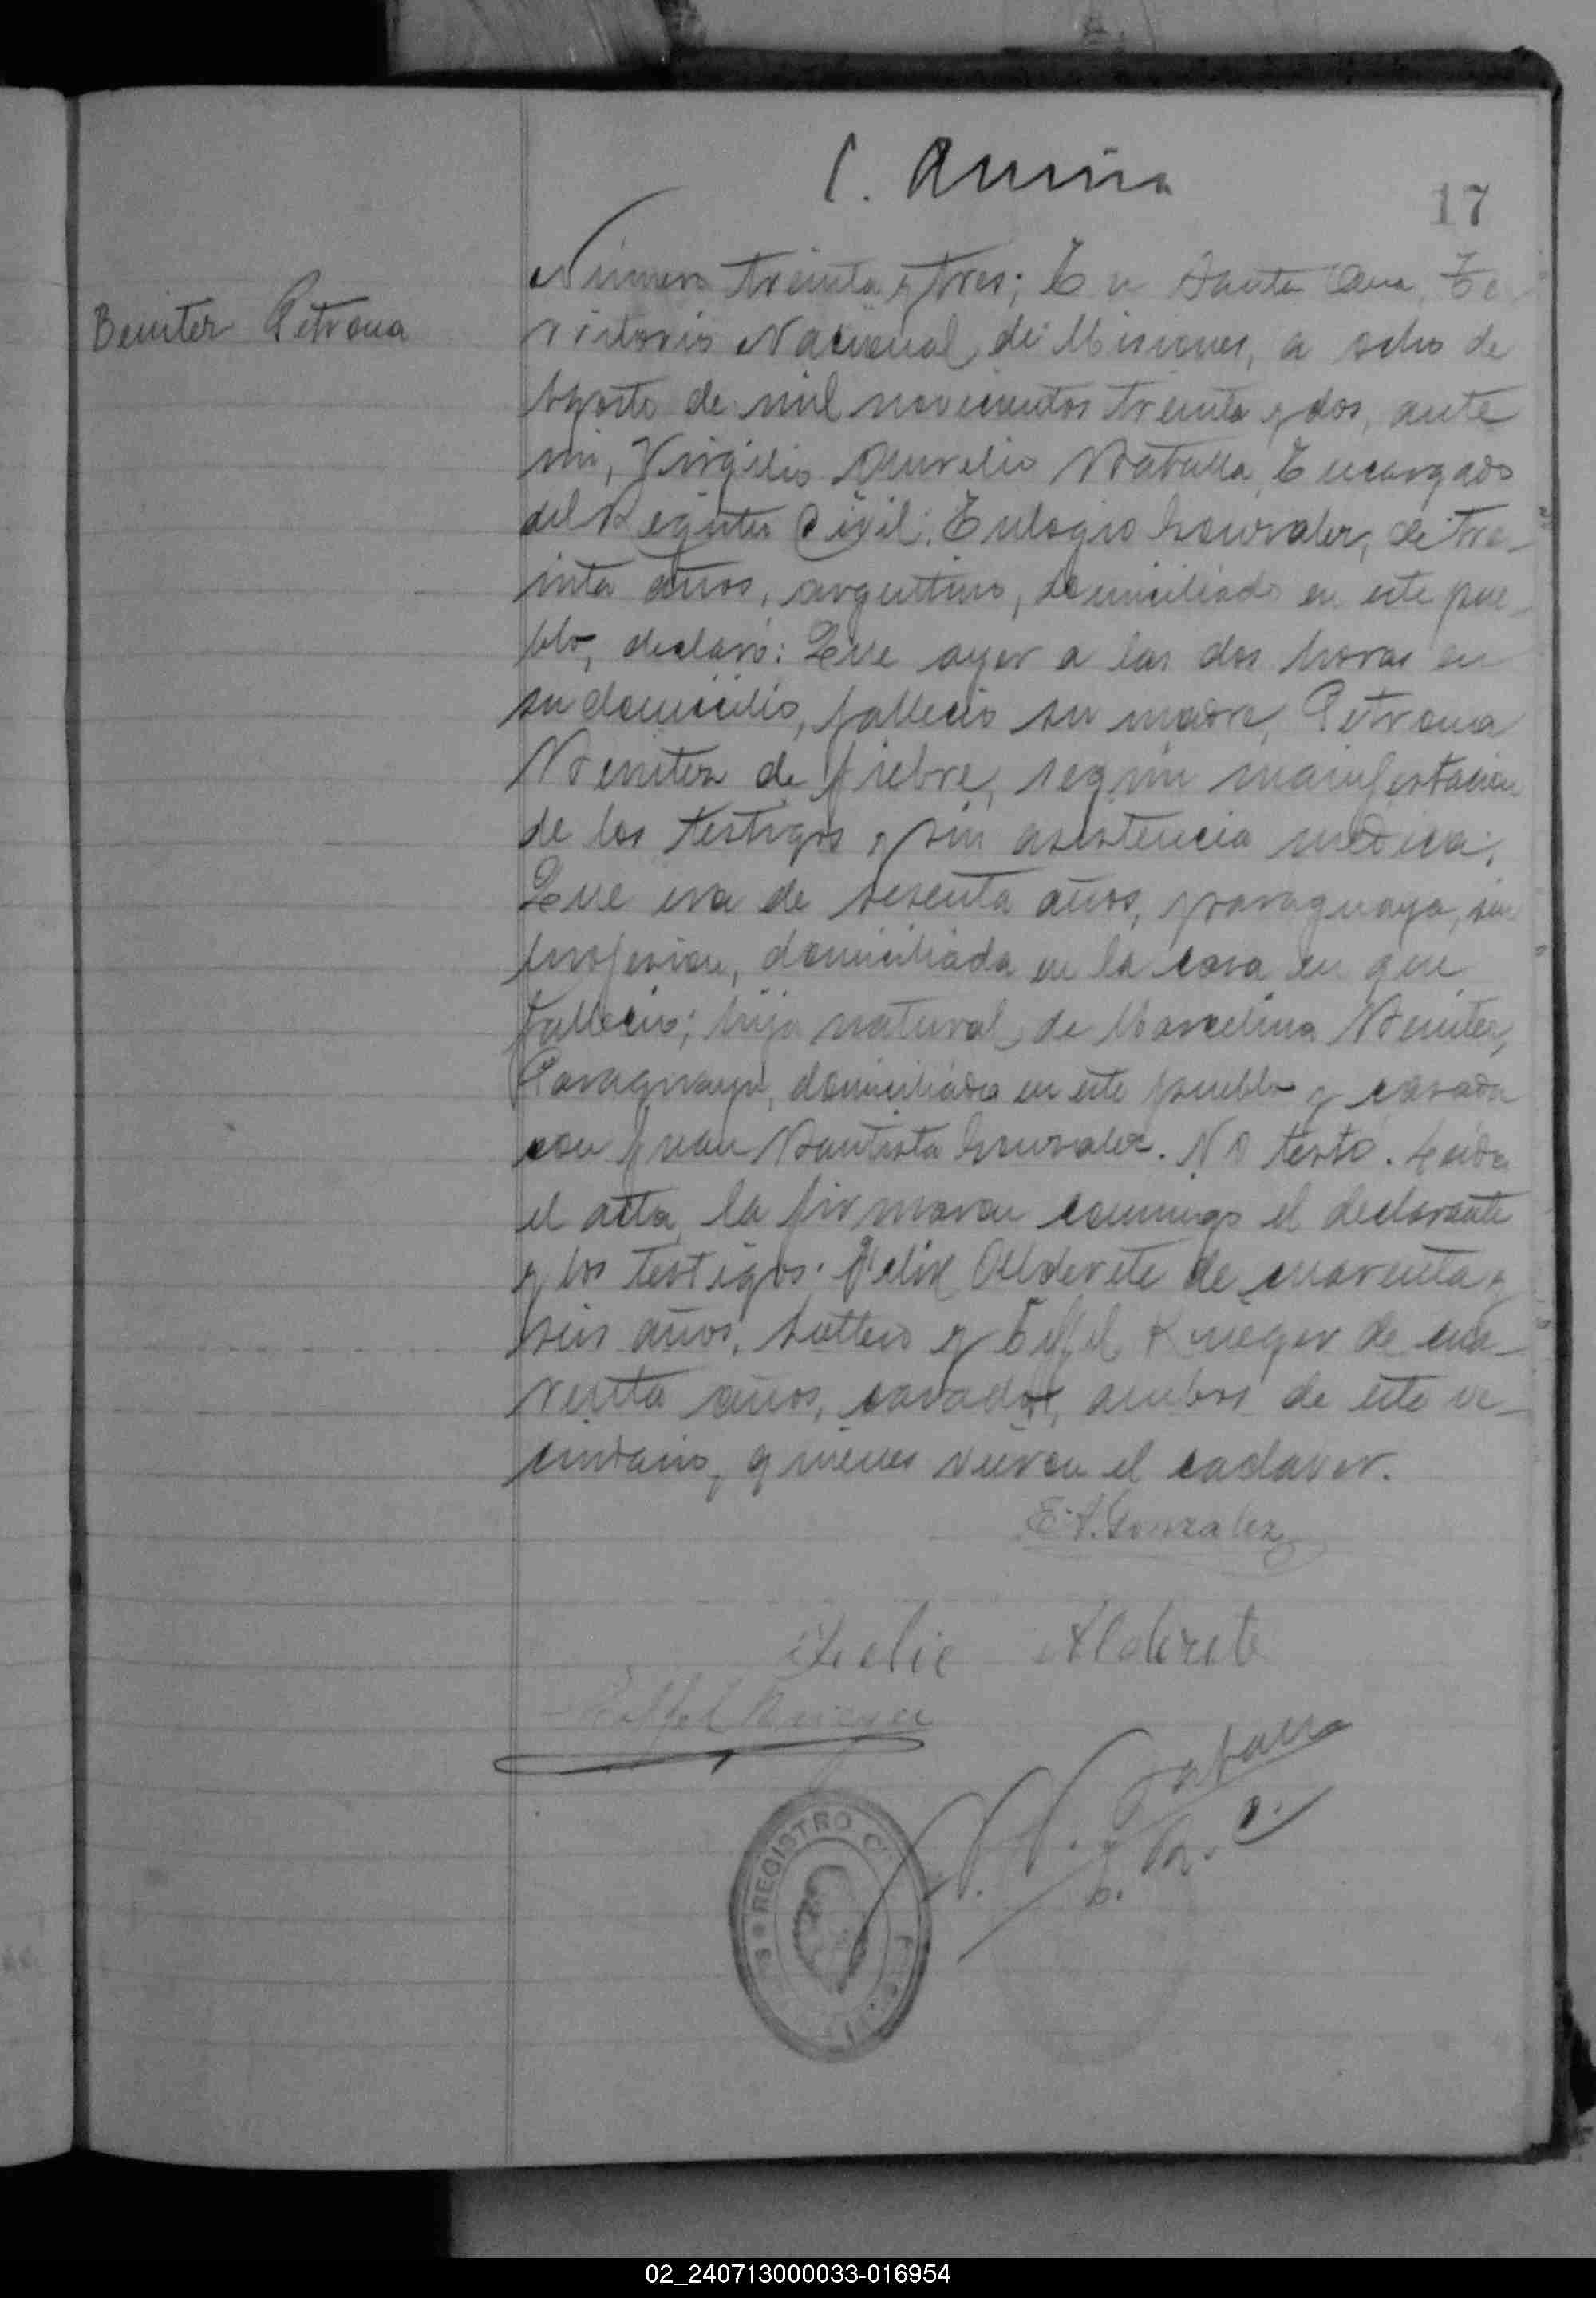 17
Benitez Petrona
Número treinta y tres; En Santa Ana, Te-
rritorio Nacional de Misiones, a ocho de
Agosto de mil novecientos treinta y dos, ante
mi, Virgilio Aurelio Batalla, Encargado
del Registro Civil; Eulogio Gonzalez, de tre-
inta años, argentino, domiciliado en este pue-
blo, declaró: Que ayer a las dos horas en
su domicilio, falleció su madre, Petrona
Benitez de fiebre, según manifestacion
de los testigos y sin asistencia médica;
Que era de sesenta años, paraguaya, sin
profesion, domiciliada en la casa en que
falleció; hija natural de Marcelina Benitez,
Paraguaya, domiciliada en este pueblo y casada
con Juan Bautista Gonzalez. No testó. Leida
el acta, la firmaron conmigo el declarante
y los testigos: Felix Alderete de cuarenta y
seis años, soltero y Eiffel Krieger de cua-
renta años, casado, ambos de este ve-
cindario, quienes vieron el cadaver.
E. A. Gonzalez
Felix Alderete
Eiffel Krieger
V. A. Batalla
REGISTRO
02_240713000033-016954